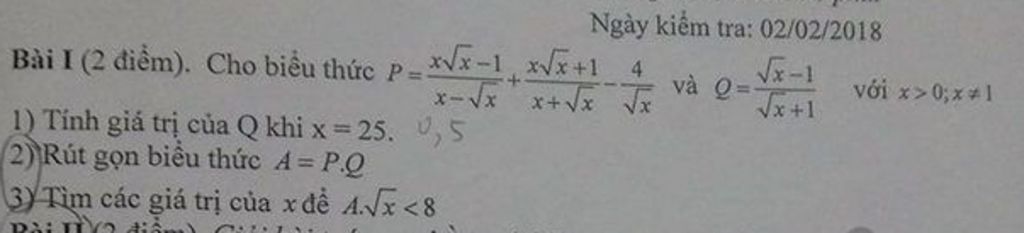 Ngày kiểm tra: 02/02/2018
Bài I (2 điểm). Cho biểu thức P = (x√x − 1)/(x − √x) + (x√x + 1)/(x + √x) − 4/√x và Q = (√x − 1)/(√x + 1) với x > 0; x ≠ 1
1) Tính giá trị của Q khi x = 25. 0,5
2) Rút gọn biểu thức A = P.Q
3) Tìm các giá trị của x để A.√x < 8
Bài II (2 điểm)